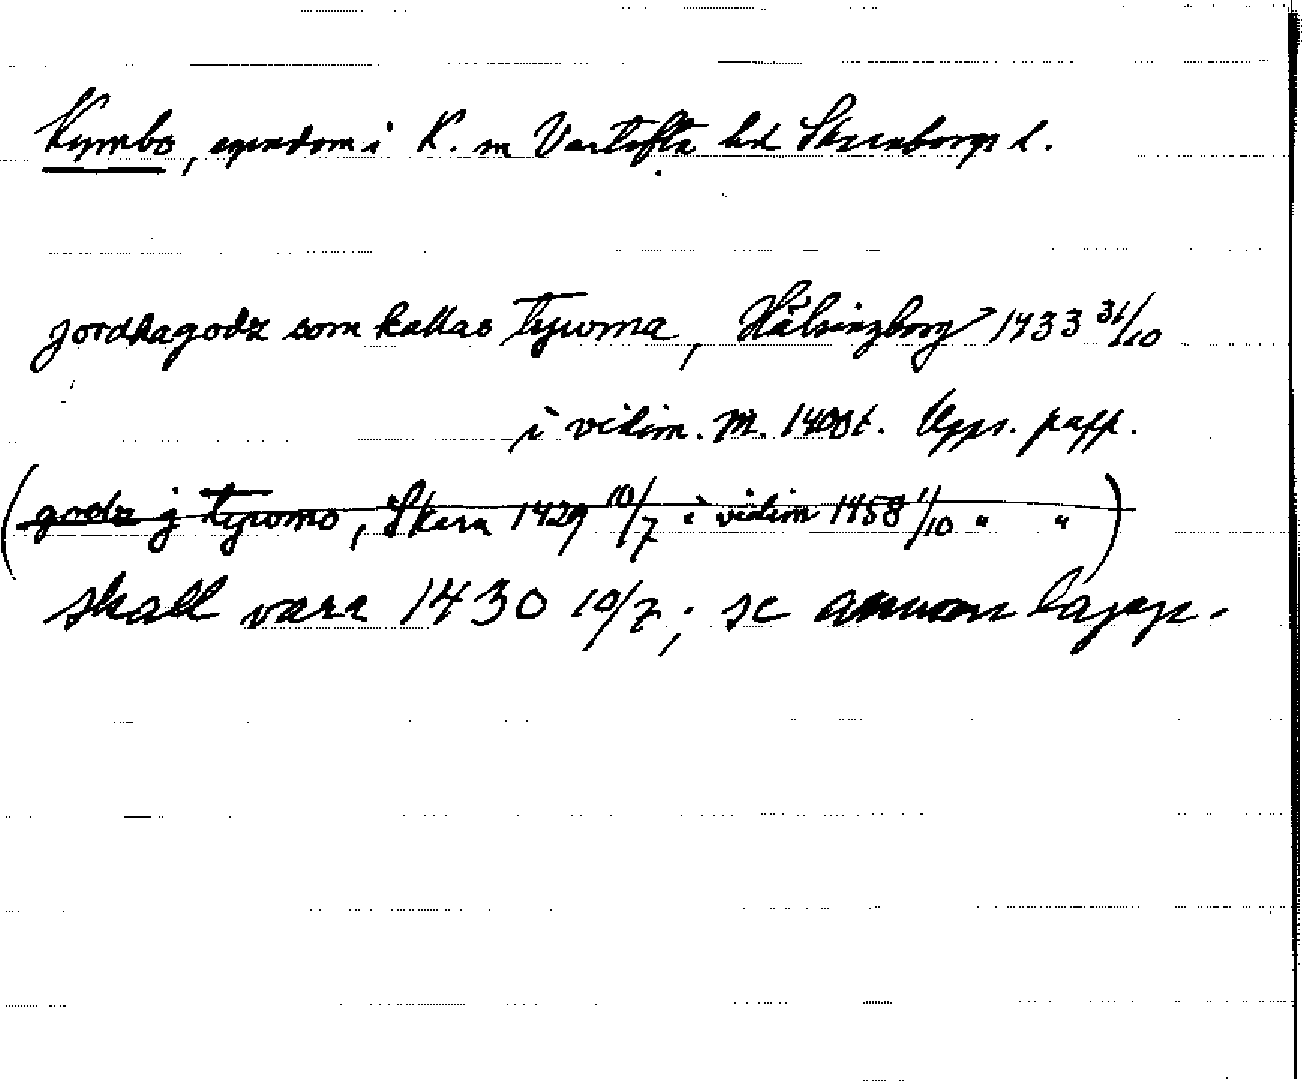 Kymbo, egendom i K. sn Vartofta hd Skaraborgs l.
jordhagodz som kallas Tywma, Hälsingborg 1433 31/10
i vidim. m. 1400t. Upps. papp.
(godz j Tywmo, Skara 1429 10/7 i vidim 1458 1/10 " ")
skall vara 1430 10/7; se annan lapp.